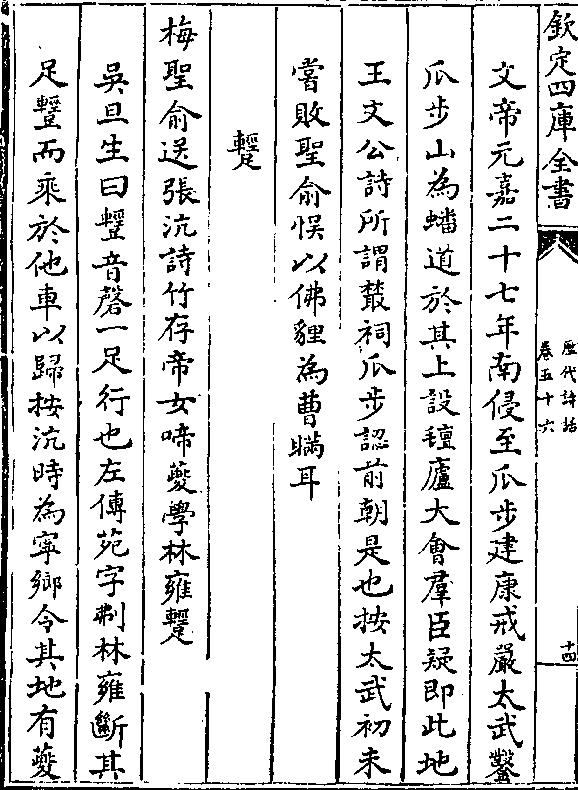 欽定四庫全書
歷代詩話
卷五十六
十四
文帝元嘉二十七年南侵至瓜步建康戒嚴太武鑿
瓜步山為蟠道於其上設氊廬大會羣臣疑即此地
王文公詩所謂叢祠瓜步認前朝是也按太武初未
嘗敗聖俞悮以佛貍為曹瞞耳
䠞
梅聖俞送張沆詩竹存帝女啼夔學林雍
吳旦生曰音磬一足行也左傳苑字刜林雍斷其
足而乘於他車以歸按沆時為寧鄉令其地有夔